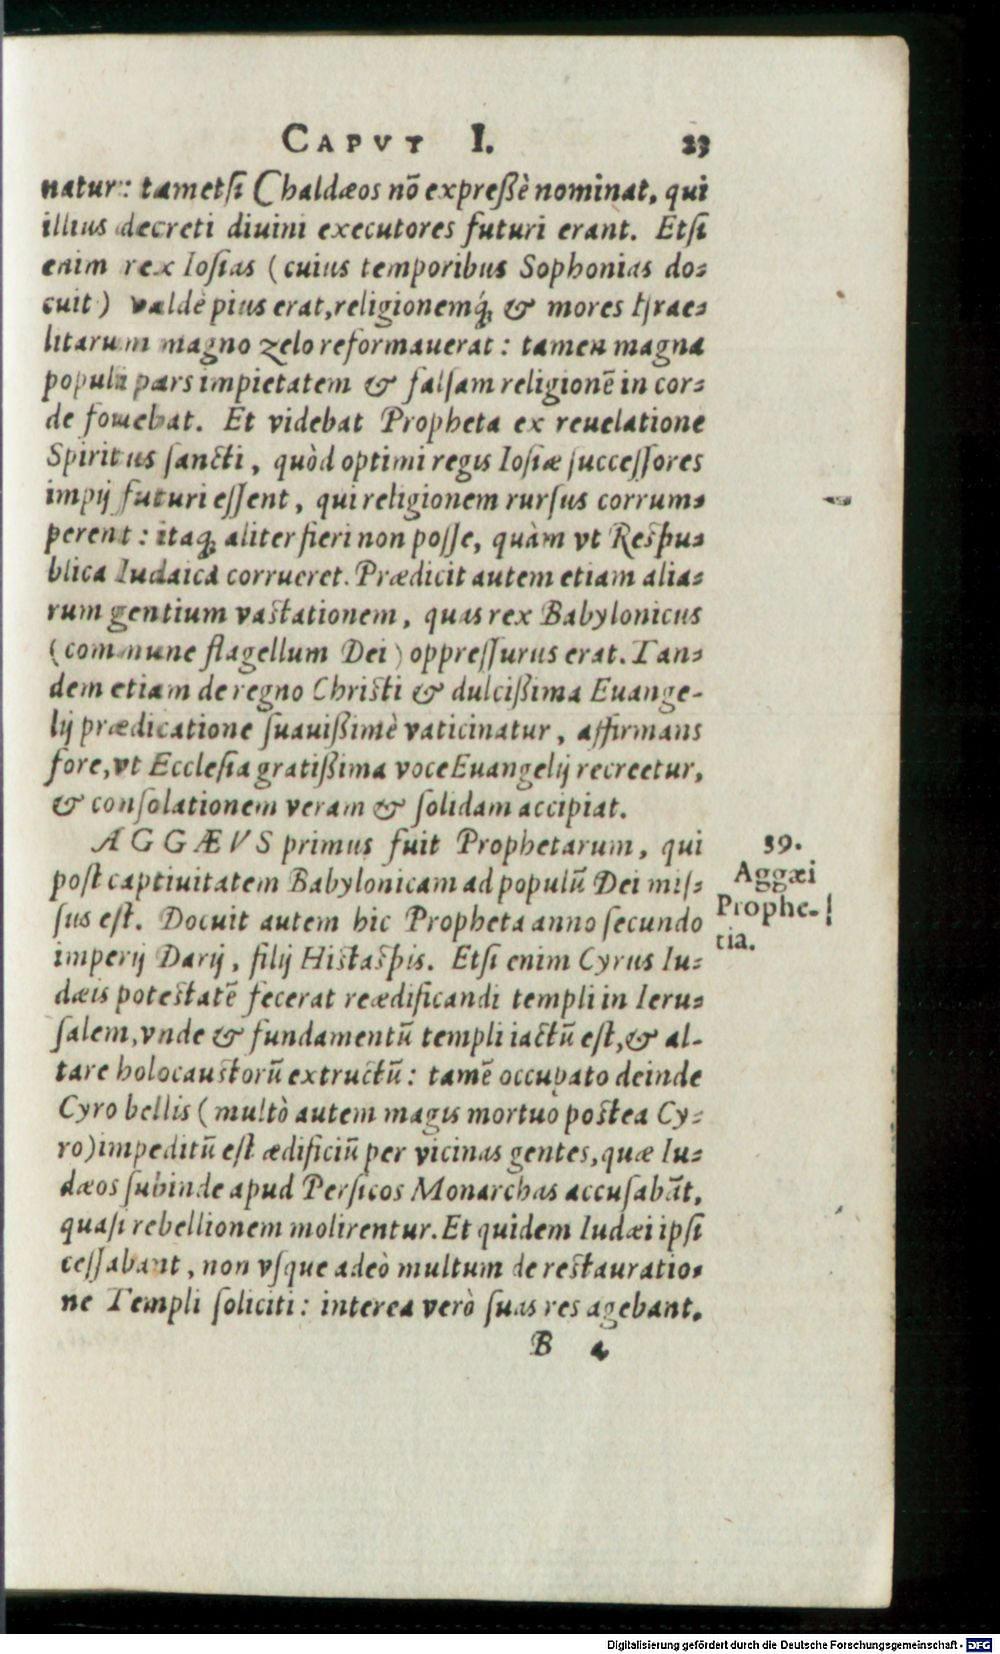 CAPVT I. 23
natur: tametsi Chaldæos nõ expreßè nominat, qui
illius decreti diuini executores futuri erant. Etsi
enim rex Iosias (cuius temporibus Sophonias do-
cuit) valdè pius erat, religionemq́; & mores Israe-
litarum magno zelo reformauerat: tamen magna
populi pars impietatem & falsam religionẽ in cor-
de fouebat. Et videbat Propheta ex reuelatione
Spiritus sancti, quòd optimi regis Iosiæ successores
impij futuri essent, qui religionem rursus corrum-
perent: itaq; aliter fieri non posse, quàm vt Respu-
blica Iudaica corrueret. Prædicit autem etiam alia-
rum gentium vastationem, quas rex Babylonicus
(commune flagellum Dei) oppressurus erat. Tan-
dem etiam de regno Christi & dulcißima Euange-
lij prædicatione suauißimè vaticinatur, affirmans
fore, vt Ecclesia gratißima voce Euangelij recreetur,
& consolationem veram & solidam accipiat.
AGGÆVS primus fuit Prophetarum, qui
post captiuitatem Babylonicam ad populũ Dei mis-
sus est. Docuit autem hic Propheta anno secundo
imperij Darij, filij Histaspis. Etsi enim Cyrus Iu-
dæis potestatẽ fecerat reædificandi templi in Ieru-
salem, vnde & fundamentũ templi iactũ est, & al-
tare holocaustorũ extructũ: tamẽ occupato deinde
Cyro bellis (multò autem magis mortuo postea Cy-
ro) impeditũ est ædificiũ per vicinas gentes, quæ Iu-
dæos subinde apud Persicos Monarchas accusabãt,
quasi rebellionem molirentur. Et quidem Iudæi ipsi
cessabant, non vsque adeò multum de restauratio-
ne Templi soliciti: interea verò suas res agebant.
B 4
39.
Aggæi
Prophe-
tia.
Digitalisierung gefördert durch die Deutsche Forschungsgemeinschaft - DFG